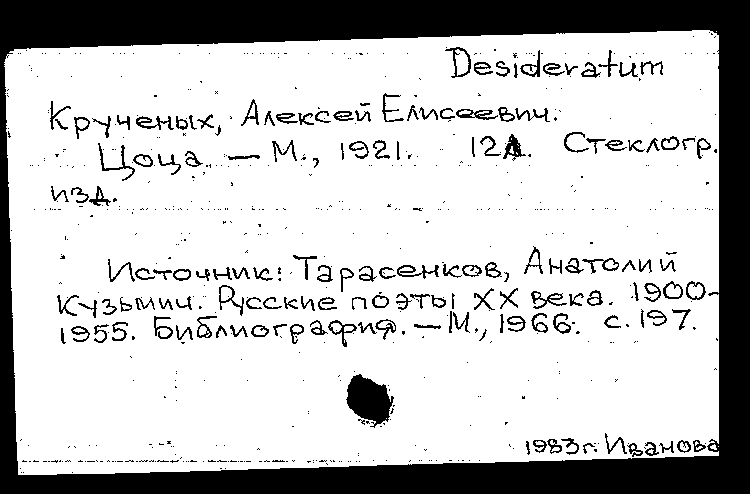 Desideratum
Крученых, Алексей Елисеевич.
Цоца. — М., 1921. 12л. Стеклогр.
изд.
Источник: Тарасенков, Анатолий
Кузьмич. Русские поэты XX века. 1900-
1955. Библиография. — М., 1966. с. 197.
1983г. Иванова